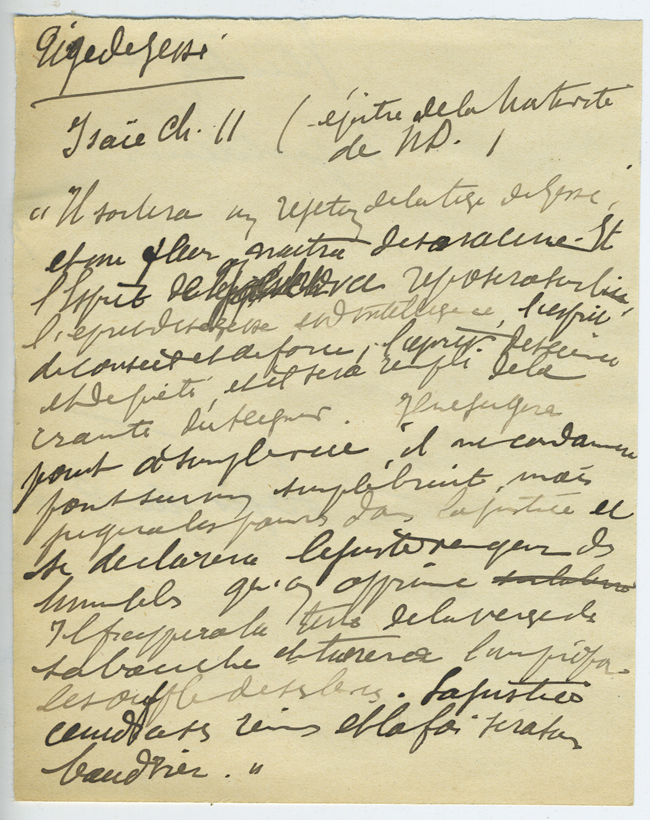 Tige de Jessé
Isaïe Ch. 11 ( épître de la Nativité
de ND. )
« Il sortira un rejeton de la tige de Jessé,
et une fleur naîtra de sa racine. Et
l'Esprit de reposera sur lui,
l'esprit de sagesse et d'intelligence, l'esprit
de conseil et de force, l'esprit de science
et de piété, et il sera rempli de la
crainte du Seigneur. Il ne jugera
point à simple vue, il ne condamnera
point sur un simple bruit, mais
jugera les pauvres dans la justice et
se déclarera le juste vengeur des
humbles qu'on opprime
Il frappera la terre de la verge de
sa bouche et tuera l'impie par
le souffle de ses lèvres. La justice
ceindra ses reins et la foi sera son
baudrier. »